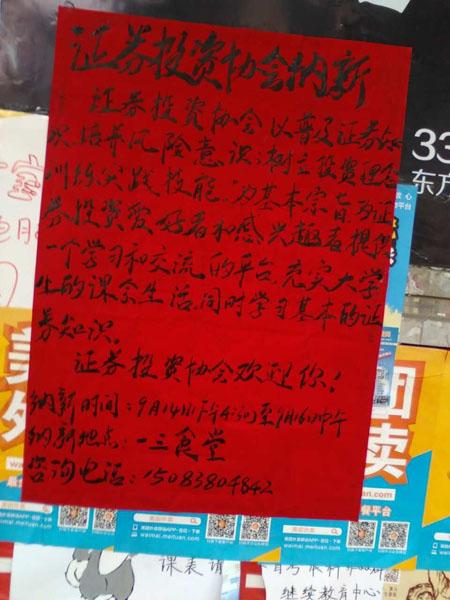 证券投资协会纳新
证券投资协会以普及证券知
识培养风险意识,树立投资理念
训练实践技能,为基本宗旨,为证
券投资爱好者和感兴趣者提供
一个学习和交流的平台,充实大学
生的课余生活,同时学习基本的证
券知识。
证券投资协会欢迎你!
纳新时间:9月14日下午4:30至9月16日中午
纳新地点:一三食堂
咨询电话:15083804842
33
东方
美
外
团
卖
餐平台
waimai.meituan.com
waimai.meituan.com
waimai.meituan.com
课表请
继续教育中心